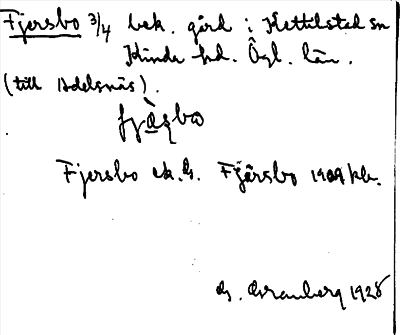 Fjersbo 3/4 bek. gård i Kettilstad sn
Kinda hd. Ögl. län.
(till Adelsnäs).
fjàsbo
Fjersbo ek.G. Fjärsbo 1909 kk.
G. Granberg 1928